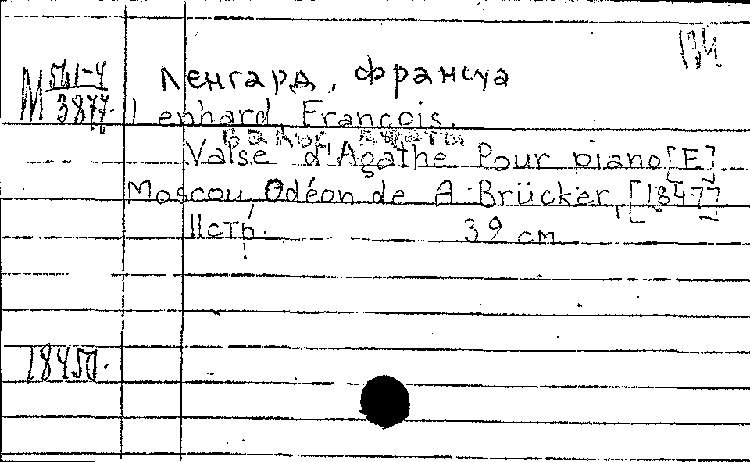 Ленгард, Франсуа
М 561-4
3877.
Lenhard, François.
Вальс Агаты
Valse d'Agathe Pour piano [E]
Moscou, Odéon de A. Brücker, [1847]
11 стр. 39 см
18450.